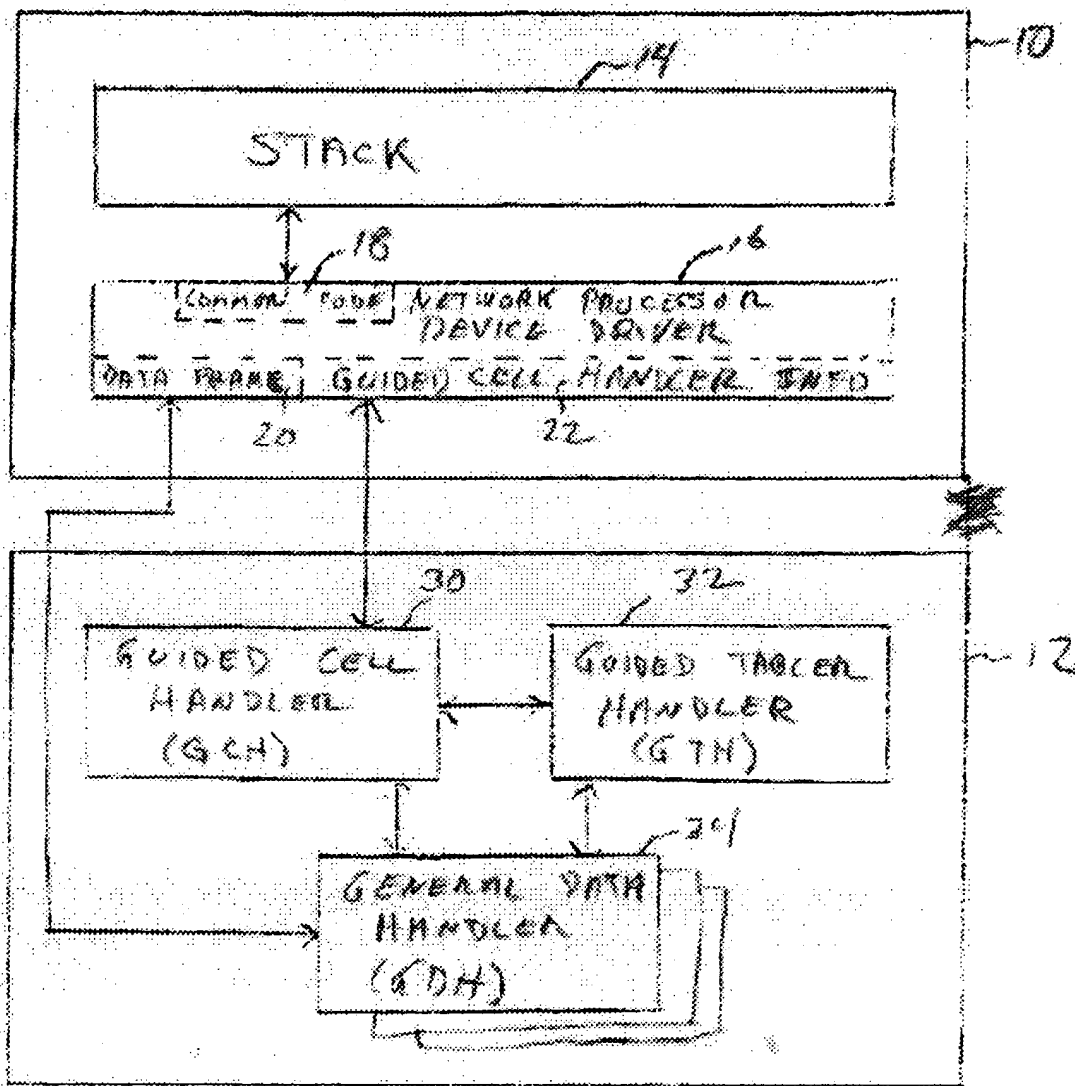 10
14
STACK
18
16
COMMON CODE
NETWORK PROCESSOR
DEVICE DRIVER
DATA FRAME
GUIDED CELL, HANDLER INFO
20
22
30
32
GUIDED CELL
HANDLER
(GCH)
GUIDED TABLER
HANDLER
(GTH)
12
34
GENERAL DATA
HANDLER
(GDH)